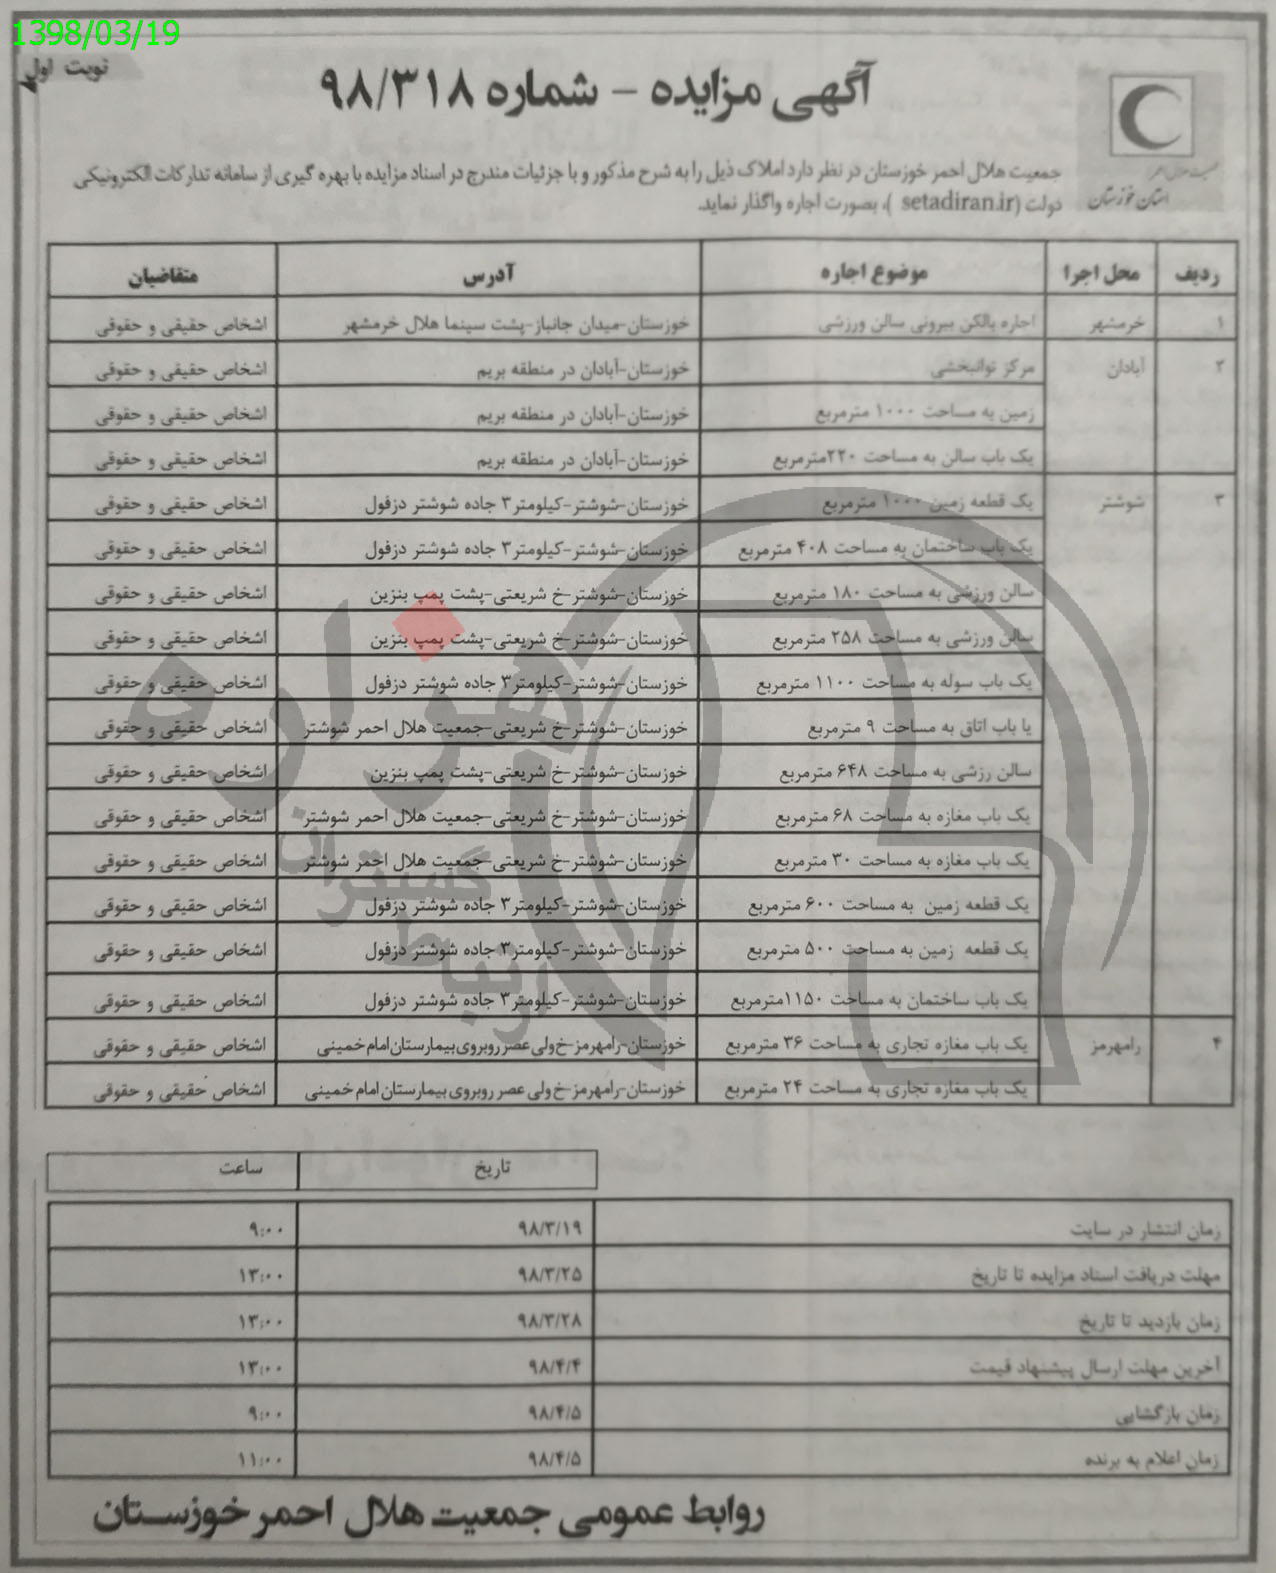 1398/03/19
نوبت اول
آگهی مزایده – شماره ۹۸/۳۱۸
جمعیت هلال احمر
استان خوزستان
جمعیت هلال احمر خوزستان در نظر دارد املاک ذیل را به شرح مذکور و با جزئیات مندرج در اسناد مزایده با بهره گیری از سامانه تدارکات الکترونیکی
دولت (setadiran.ir )، بصورت اجاره واگذار نماید.
ردیف محل اجرا موضوع اجاره آدرس متقاضیان
۱ خرمشهر اجاره بالکن بیرونی سالن ورزشی خوزستان-میدان جانباز-پشت سینما هلال خرمشهر اشخاص حقیقی و حقوقی
۲ آبادان مرکز توانبخشی خوزستان-آبادان در منطقه بریم اشخاص حقیقی و حقوقی
زمین به مساحت ۱۰۰۰ مترمربع خوزستان-آبادان در منطقه بریم اشخاص حقیقی و حقوقی
یک باب سالن به مساحت ۲۲۰مترمربع خوزستان-آبادان در منطقه بریم اشخاص حقیقی و حقوقی
۳ شوشتر یک قطعه زمین ۱۰۰۰ مترمربع خوزستان-شوشتر-کیلومتر۳ جاده شوشتر دزفول اشخاص حقیقی و حقوقی
یک باب ساختمان به مساحت ۴۰۸ مترمربع خوزستان-شوشتر-کیلومتر۳ جاده شوشتر دزفول اشخاص حقیقی و حقوقی
سالن ورزشی به مساحت ۱۸۰ مترمربع خوزستان-شوشتر-خ شریعتی-پشت پمپ بنزین اشخاص حقیقی و حقوقی
سالن ورزشی به مساحت ۲۵۸ مترمربع خوزستان-شوشتر-خ شریعتی-پشت پمپ بنزین اشخاص حقیقی و حقوقی
یک باب سوله به مساحت ۱۱۰۰ مترمربع خوزستان-شوشتر-کیلومتر۳ جاده شوشتر دزفول اشخاص حقیقی و حقوقی
یا باب اتاق به مساحت ۹ مترمربع خوزستان-شوشتر-خ شریعتی-جمعیت هلال احمر شوشتر اشخاص حقیقی و حقوقی
سالن رزشی به مساحت ۶۴۸ مترمربع خوزستان-شوشتر-خ شریعتی-پشت پمپ بنزین اشخاص حقیقی و حقوقی
یک باب مغازه به مساحت ۶۸ مترمربع خوزستان-شوشتر-خ شریعتی-جمعیت هلال احمر شوشتر اشخاص حقیقی و حقوقی
یک باب مغازه به مساحت ۳۰ مترمربع خوزستان-شوشتر-خ شریعتی-جمعیت هلال احمر شوشتر اشخاص حقیقی و حقوقی
یک قطعه زمین به مساحت ۶۰۰ مترمربع خوزستان-شوشتر-کیلومتر۳ جاده شوشتر دزفول اشخاص حقیقی و حقوقی
یک قطعه زمین به مساحت ۵۰۰ مترمربع خوزستان-شوشتر-کیلومتر۳ جاده شوشتر دزفول اشخاص حقیقی و حقوقی
یک باب ساختمان به مساحت ۱۱۵۰مترمربع خوزستان-شوشتر-کیلومتر۳ جاده شوشتر دزفول اشخاص حقیقی و حقوقی
۴ رامهرمز یک باب مغازه تجاری به مساحت ۳۶ مترمربع خوزستان-رامهرمز-خ ولی عصر روبروی بیمارستان امام خمینی اشخاص حقیقی و حقوقی
یک باب مغازه تجاری به مساحت ۲۴ مترمربع خوزستان-رامهرمز-خ ولی عصر روبروی بیمارستان امام خمینی اشخاص حقیقی و حقوقی
هزاره
گستران
ارتباط
تاریخ ساعت
زمان انتشار در سایت ۹۸/۳/۱۹ ۹:۰۰
مهلت دریافت اسناد مزایده تا تاریخ ۹۸/۳/۲۵ ۱۳:۰۰
زمان بازدید تا تاریخ ۹۸/۳/۲۸ ۱۳:۰۰
آخرین مهلت ارسال پیشنهاد قیمت ۹۸/۴/۴ ۱۳:۰۰
زمان بازگشایی ۹۸/۴/۵ ۹:۰۰
زمان اعلام به برنده ۹۸/۴/۵ ۱۱:۰۰
روابط عمومی جمعیت هلال احمر خوزستان